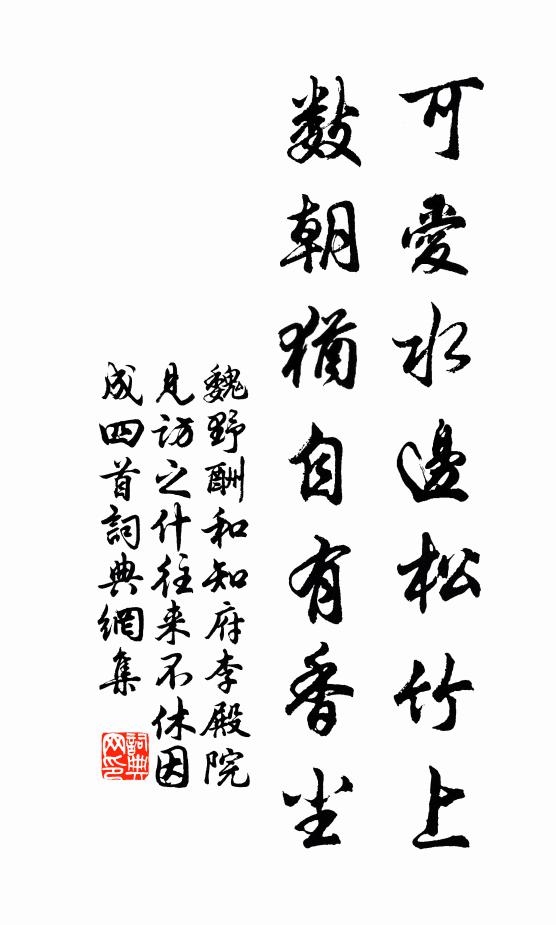 可愛水邊松竹上
數朝猶自有香尘
魏野酬和知府李殿院
見訪之什往来不休因
成四首詞典網集
詞典网印